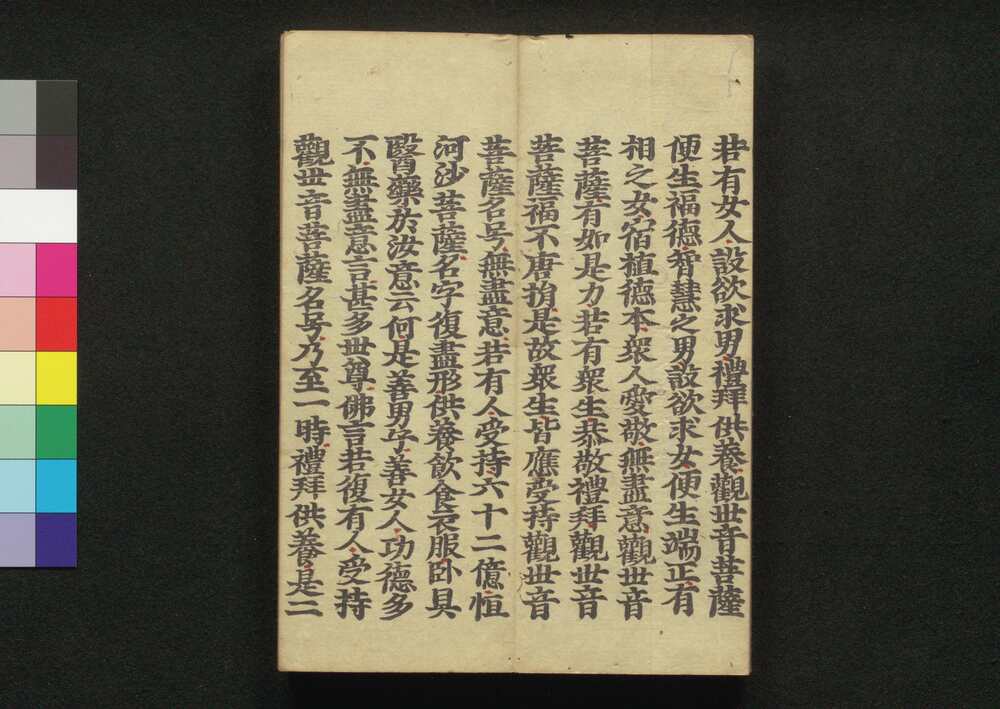 若有女人設欲求男禮拜供養觀世音菩薩
便生福德智慧之男設欲求女便生端正有
相之女宿植德本衆人愛敬無盡意觀世音
菩薩有如是力若有衆生恭敬禮拜觀世音
菩薩福不唐捐是故衆生皆應受持觀世音
菩薩名号無盡意若有人受持六十二億恒
河沙菩薩名字復盡形供養飲食衣服卧具
醫藥於汝意云何是善男子善女人功德多
不無盡意言甚多世尊佛言若復有人受持
觀世音菩薩名号乃至一時禮拜供養是二